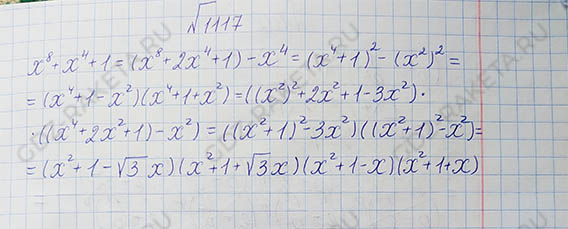 √1117
x⁸+x⁴+1=(x⁸+2x⁴+1)-x⁴=(x⁴+1)²-(x²)²=
=(x⁴+1-x²)(x⁴+1+x²)=((x²)²+2x²+1-3x²)·
·((x⁴+2x²+1)-x²)=((x²+1)²-3x²)((x²+1)²-x²)=
=(x²+1-√3x)(x²+1+√3x)(x²+1-x)(x²+1+x)